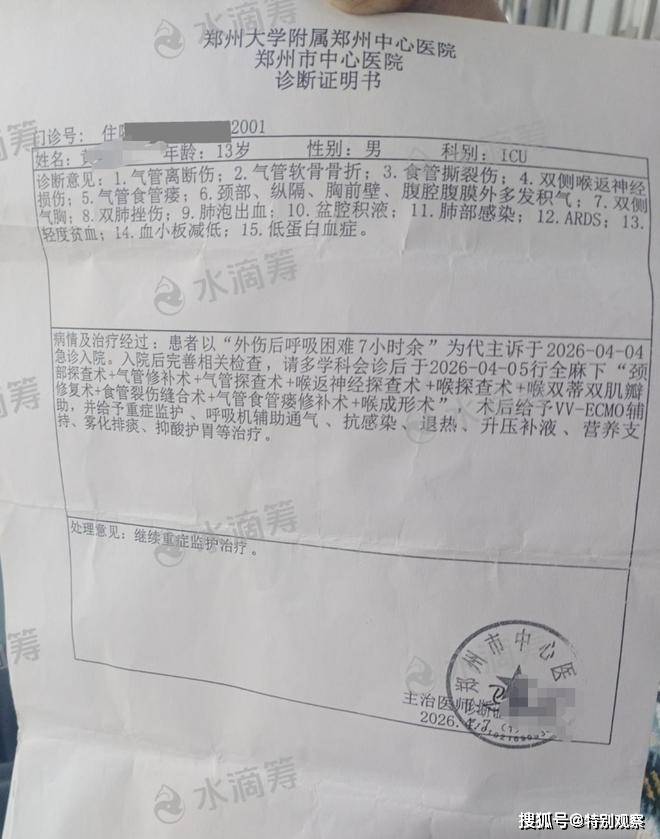 水滴筹
郑州大学附属郑州中心医院
郑州市中心医院
诊断证明书
门诊号: 住 2001
姓名: 年龄: 13岁 性别: 男 科别: ICU
诊断意见: 1. 气管离断伤; 2. 气管软骨骨折; 3. 食管撕裂伤; 4. 双侧喉返神经
损伤; 5. 气管食管瘘; 6. 颈部、纵隔、胸前壁、腹腔腹膜外多发积气; 7. 双侧
气胸; 8. 双肺挫伤; 9. 肺泡出血; 10. 盆腔积液; 11. 肺部感染; 12. ARDS; 13.
轻度贫血; 14. 血小板减低; 15. 低蛋白血症。
水滴筹
病情及治疗经过: 患者以“外伤后呼吸困难7小时余”为代主诉于2026-04-04
急诊入院。入院后完善相关检查, 请多学科会诊后于2026-04-05行全麻下“颈
部探查术+气管修补术+气管探查术+喉返神经探查术+喉探查术+喉双蒂双肌瓣
修复术+食管裂伤缝合术+气管食管瘘修补术+喉成形术”, 术后给予VV-ECMO辅
助, 并给予重症监护、呼吸机辅助通气、抗感染、退热、升压补液、营养支
持、雾化排痰、抑酸护胃等治疗。
水滴筹
处理意见: 继续重症监护治疗。
郑州市中心医
主治医师
2026.
水滴筹
搜狐号@特别观察